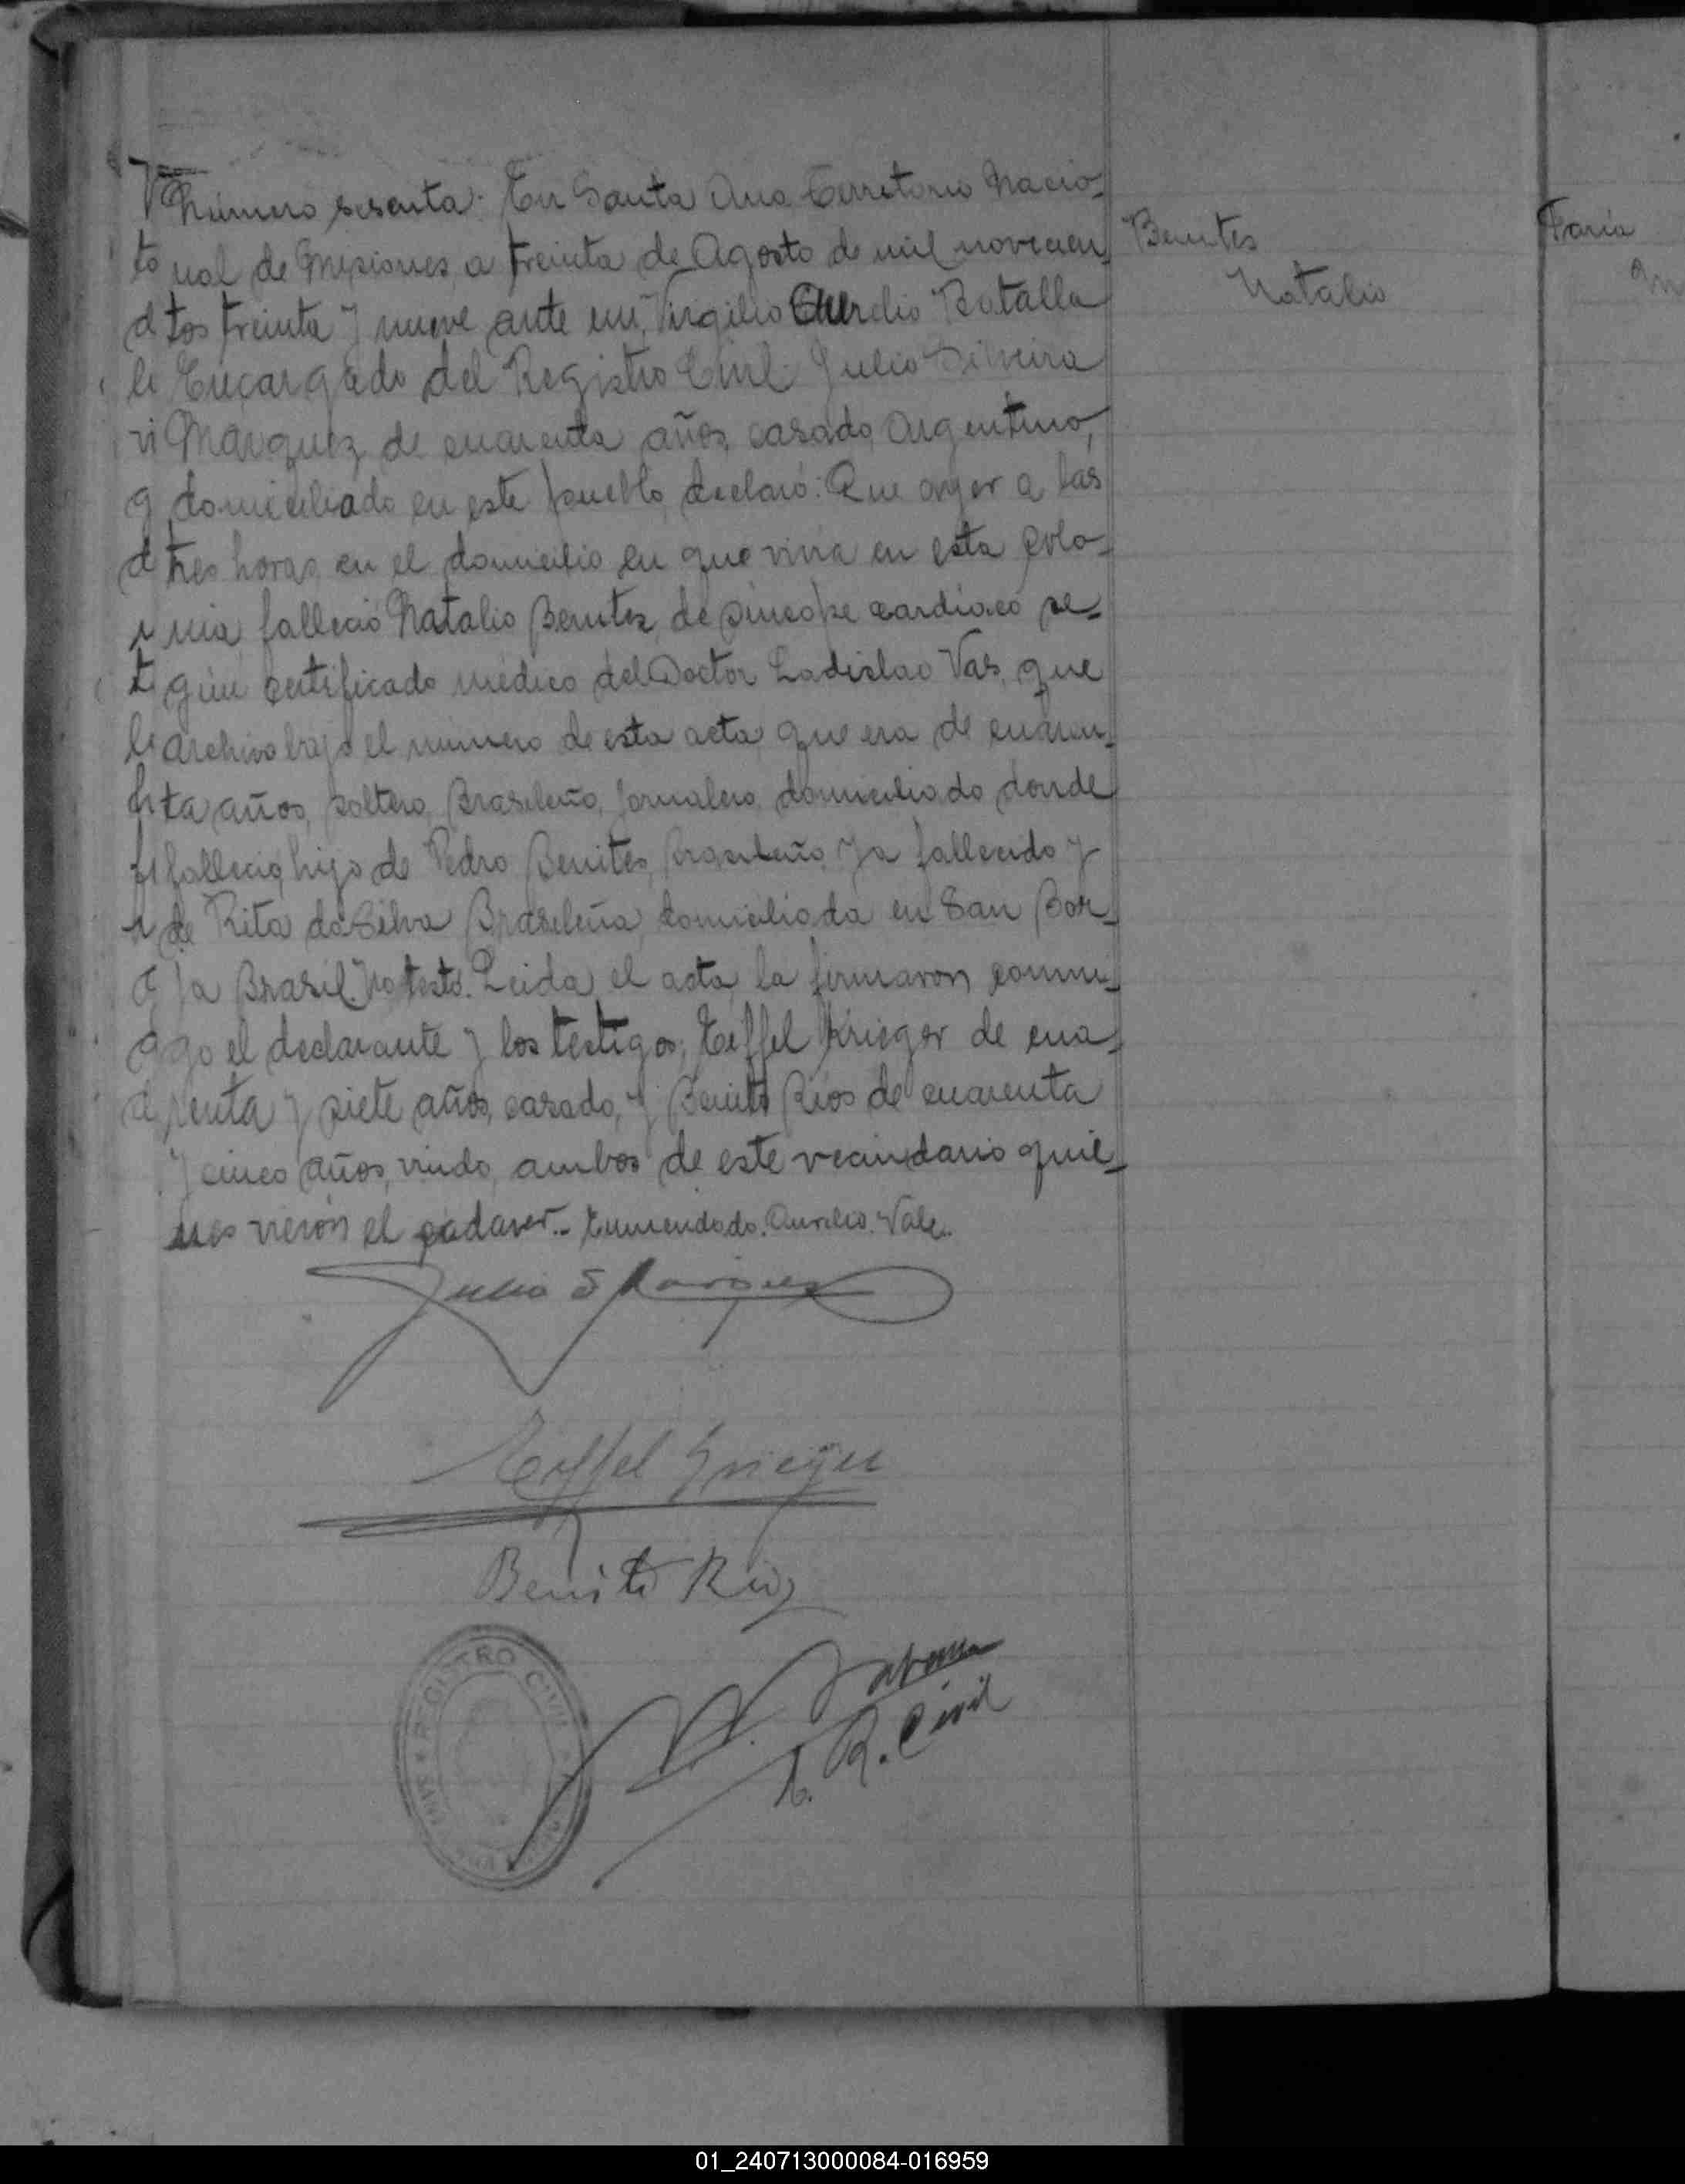 Número sesenta. En Santa Ana Territorio Nacio-
nal de Misiones, a treinta de Agosto de mil novecien-
tos treinta y nueve, ante mí, Virgilio Aurelio Batalla
Encargado del Registro Civil: Julio Silveira
Marquez de cuarenta años, casado, Argentino,
domiciliado en este pueblo, declaró: Que ayer a las
tres horas, en el domicilio en que vivia en esta Colo-
nia, falleció Natalio Benitez, de sincope cardiaco se-
gún certificado médico del Doctor Ladislao Vas, que
archivo bajo el número de esta acta, que era de cuaren-
ta años, soltero, Brasileño, jornalero, domiciliado donde
falleció, hijo de Pedro Benites, Brasileño, ya fallecido y
de Rita da Silva Brasileña, domiciliada en San Bor-
ja Brasil. No testó. Leida el acta, la firmaron conmi-
go el declarante y los testigos; Eeffel Krieger de cua-
renta y siete años, casado, y Benito Rios de cuarenta
y cinco años, viudo, ambos de este vecindario quie-
nes vieron el cadaver.- Enmendado. Aurelio. Vale.
Benites
Natalio
Faria
Julio S Marquez
Benito Rios
E. R. Civil
REGISTRO CIVIL
01_240713000084-016959